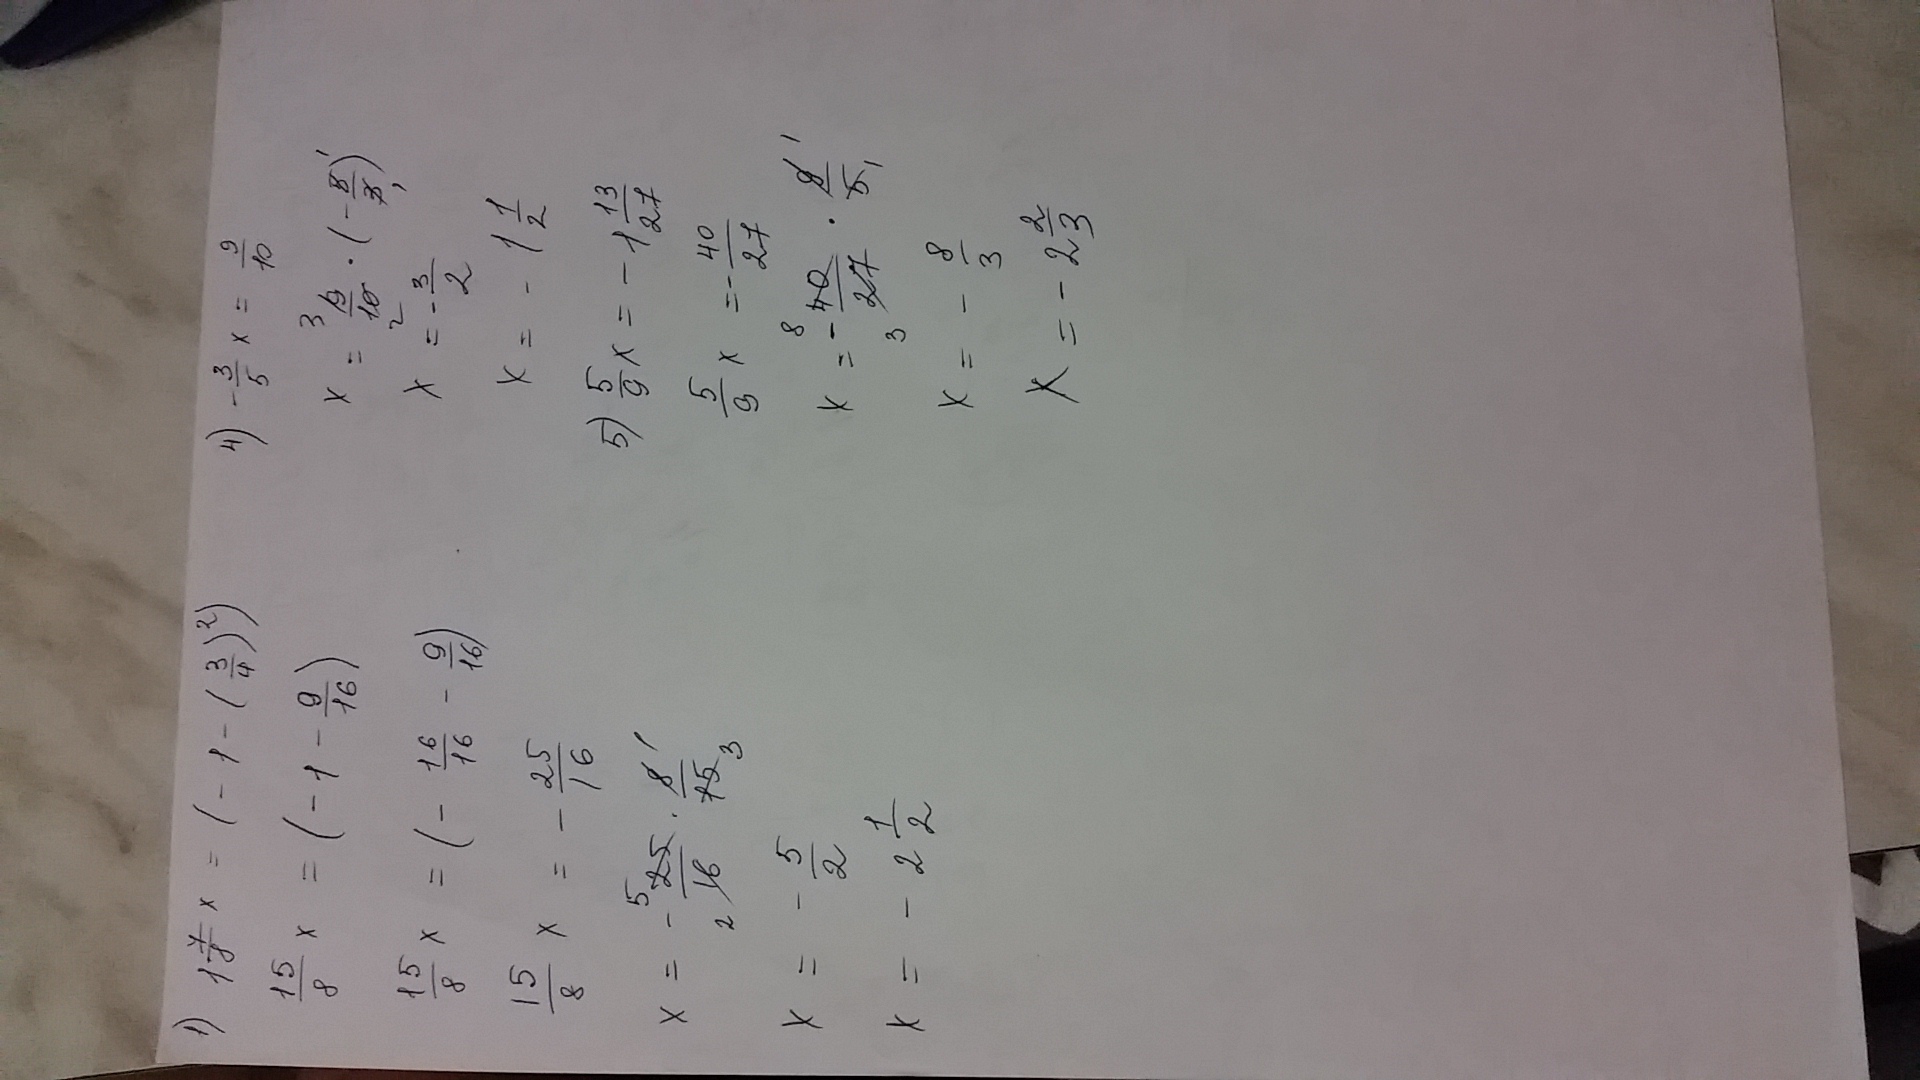 1) 1 7/8 x = (-1-(3/4)²)
15/8 x = (-1-9/16)
15/8 x = (-16/16 - 9/16)
15/8 x = -25/16
x = -⁵25/₂16 · 8¹/15₃
x = -5/2
x = -2 1/2
4) -3/5 x = 9/10
x = ³9/₂10 · (-5¹/3₁)
x = -3/2
x = -1 1/2
5) 5/9 x = -1 13/27
5/9 x = -40/27
x = -⁸40/₃27 · 9¹/5₁
x = -8/3
x = -2 2/3